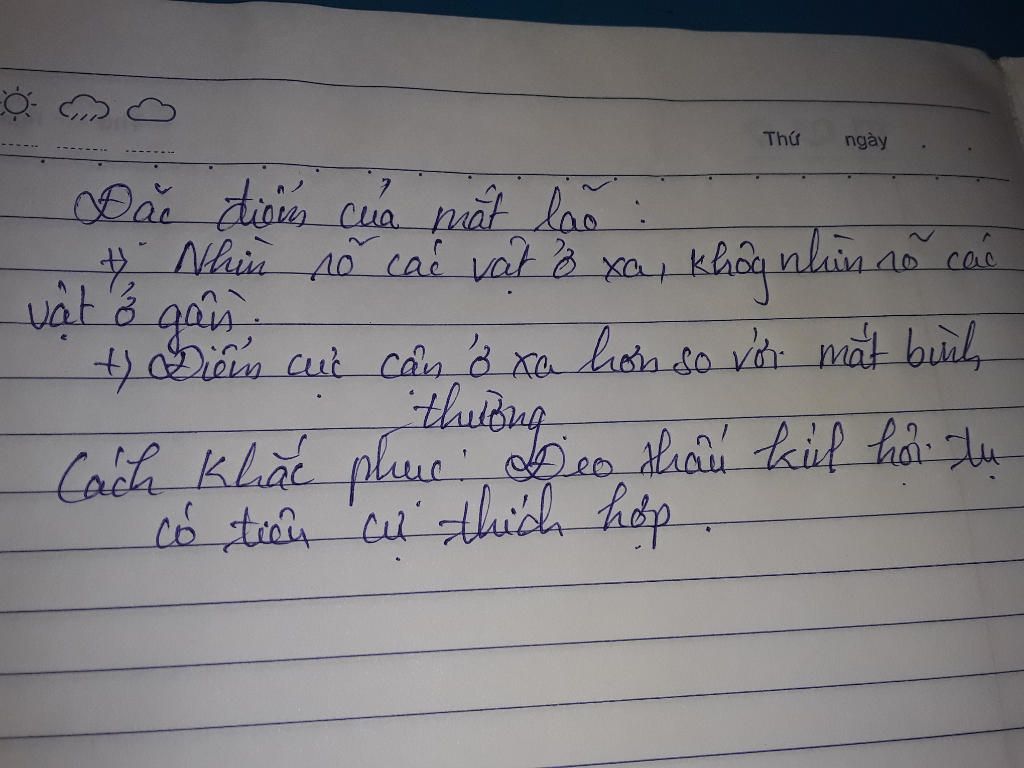 Thứ ngày . .
Đặc điểm của mắt lão :
+) Nhìn rõ các vật ở xa, không nhìn rõ các
vật ở gần.
+) Điểm cực cận ở xa hơn so với mắt bình
thường
Cách khắc phục : Đeo thấu kính hội tụ
có tiêu cự thích hợp .